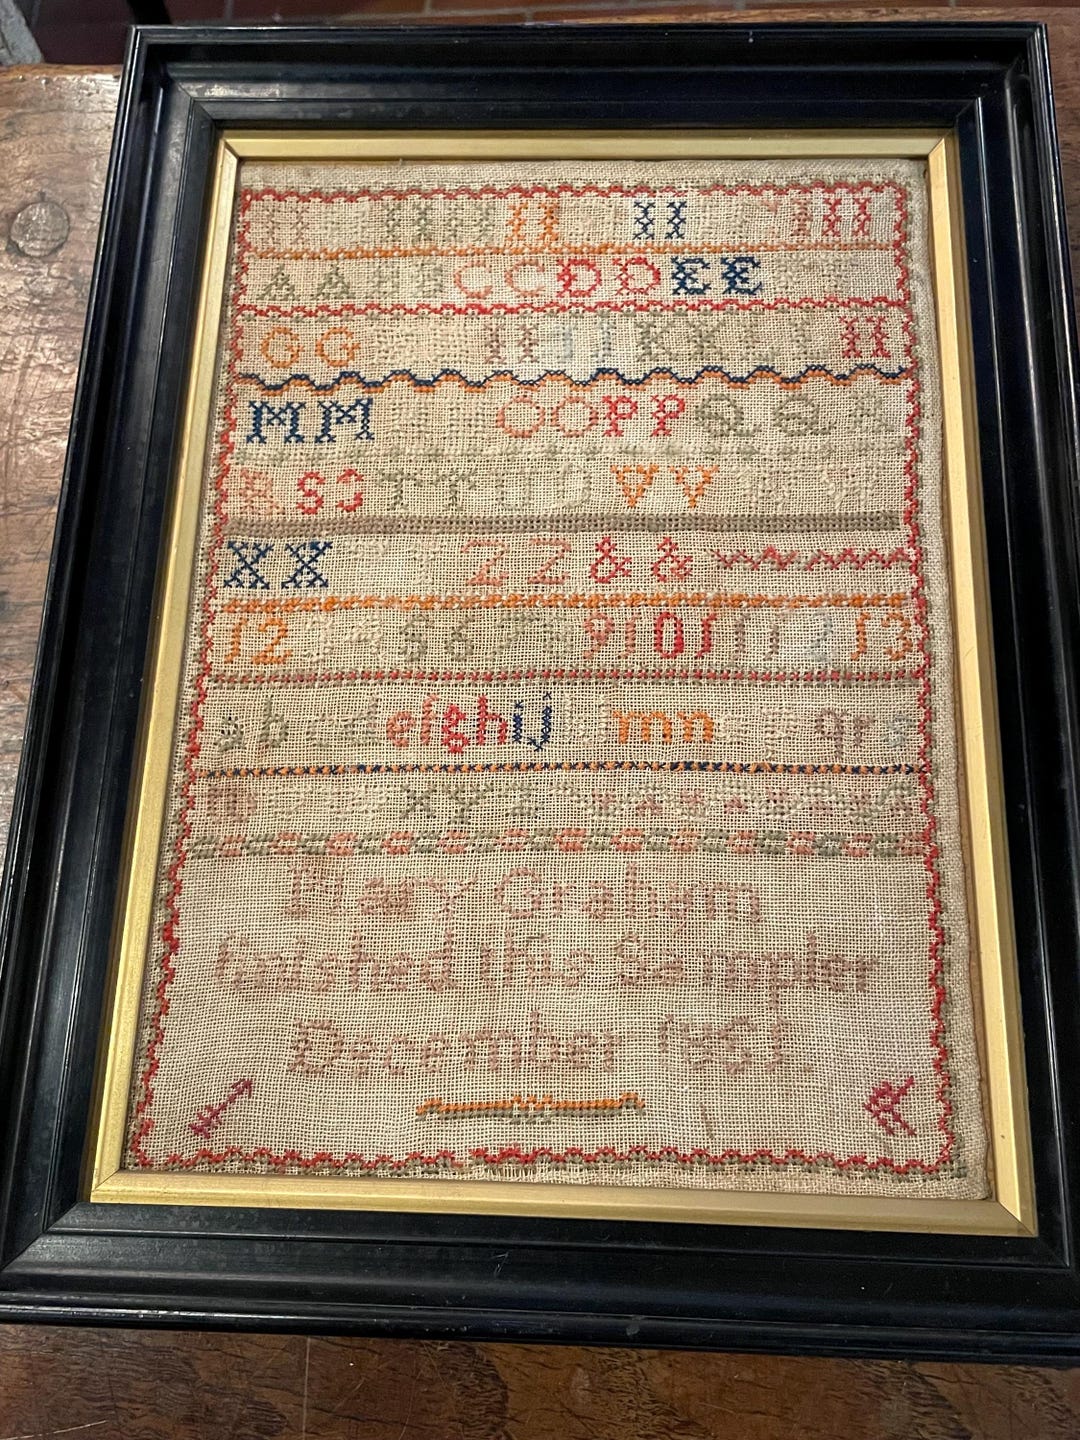 A A B B C C D D E E
G G I I J J K K L L
M M O O P P Q Q R
R S S T T U U V V W W
X X Z Z & &
1 2 3 4 5 6 7 8 9 10 11 12 13
a b c d e f g h i j k l m n o p q r s
x y z
Mary Graham
finished this Sampler
December